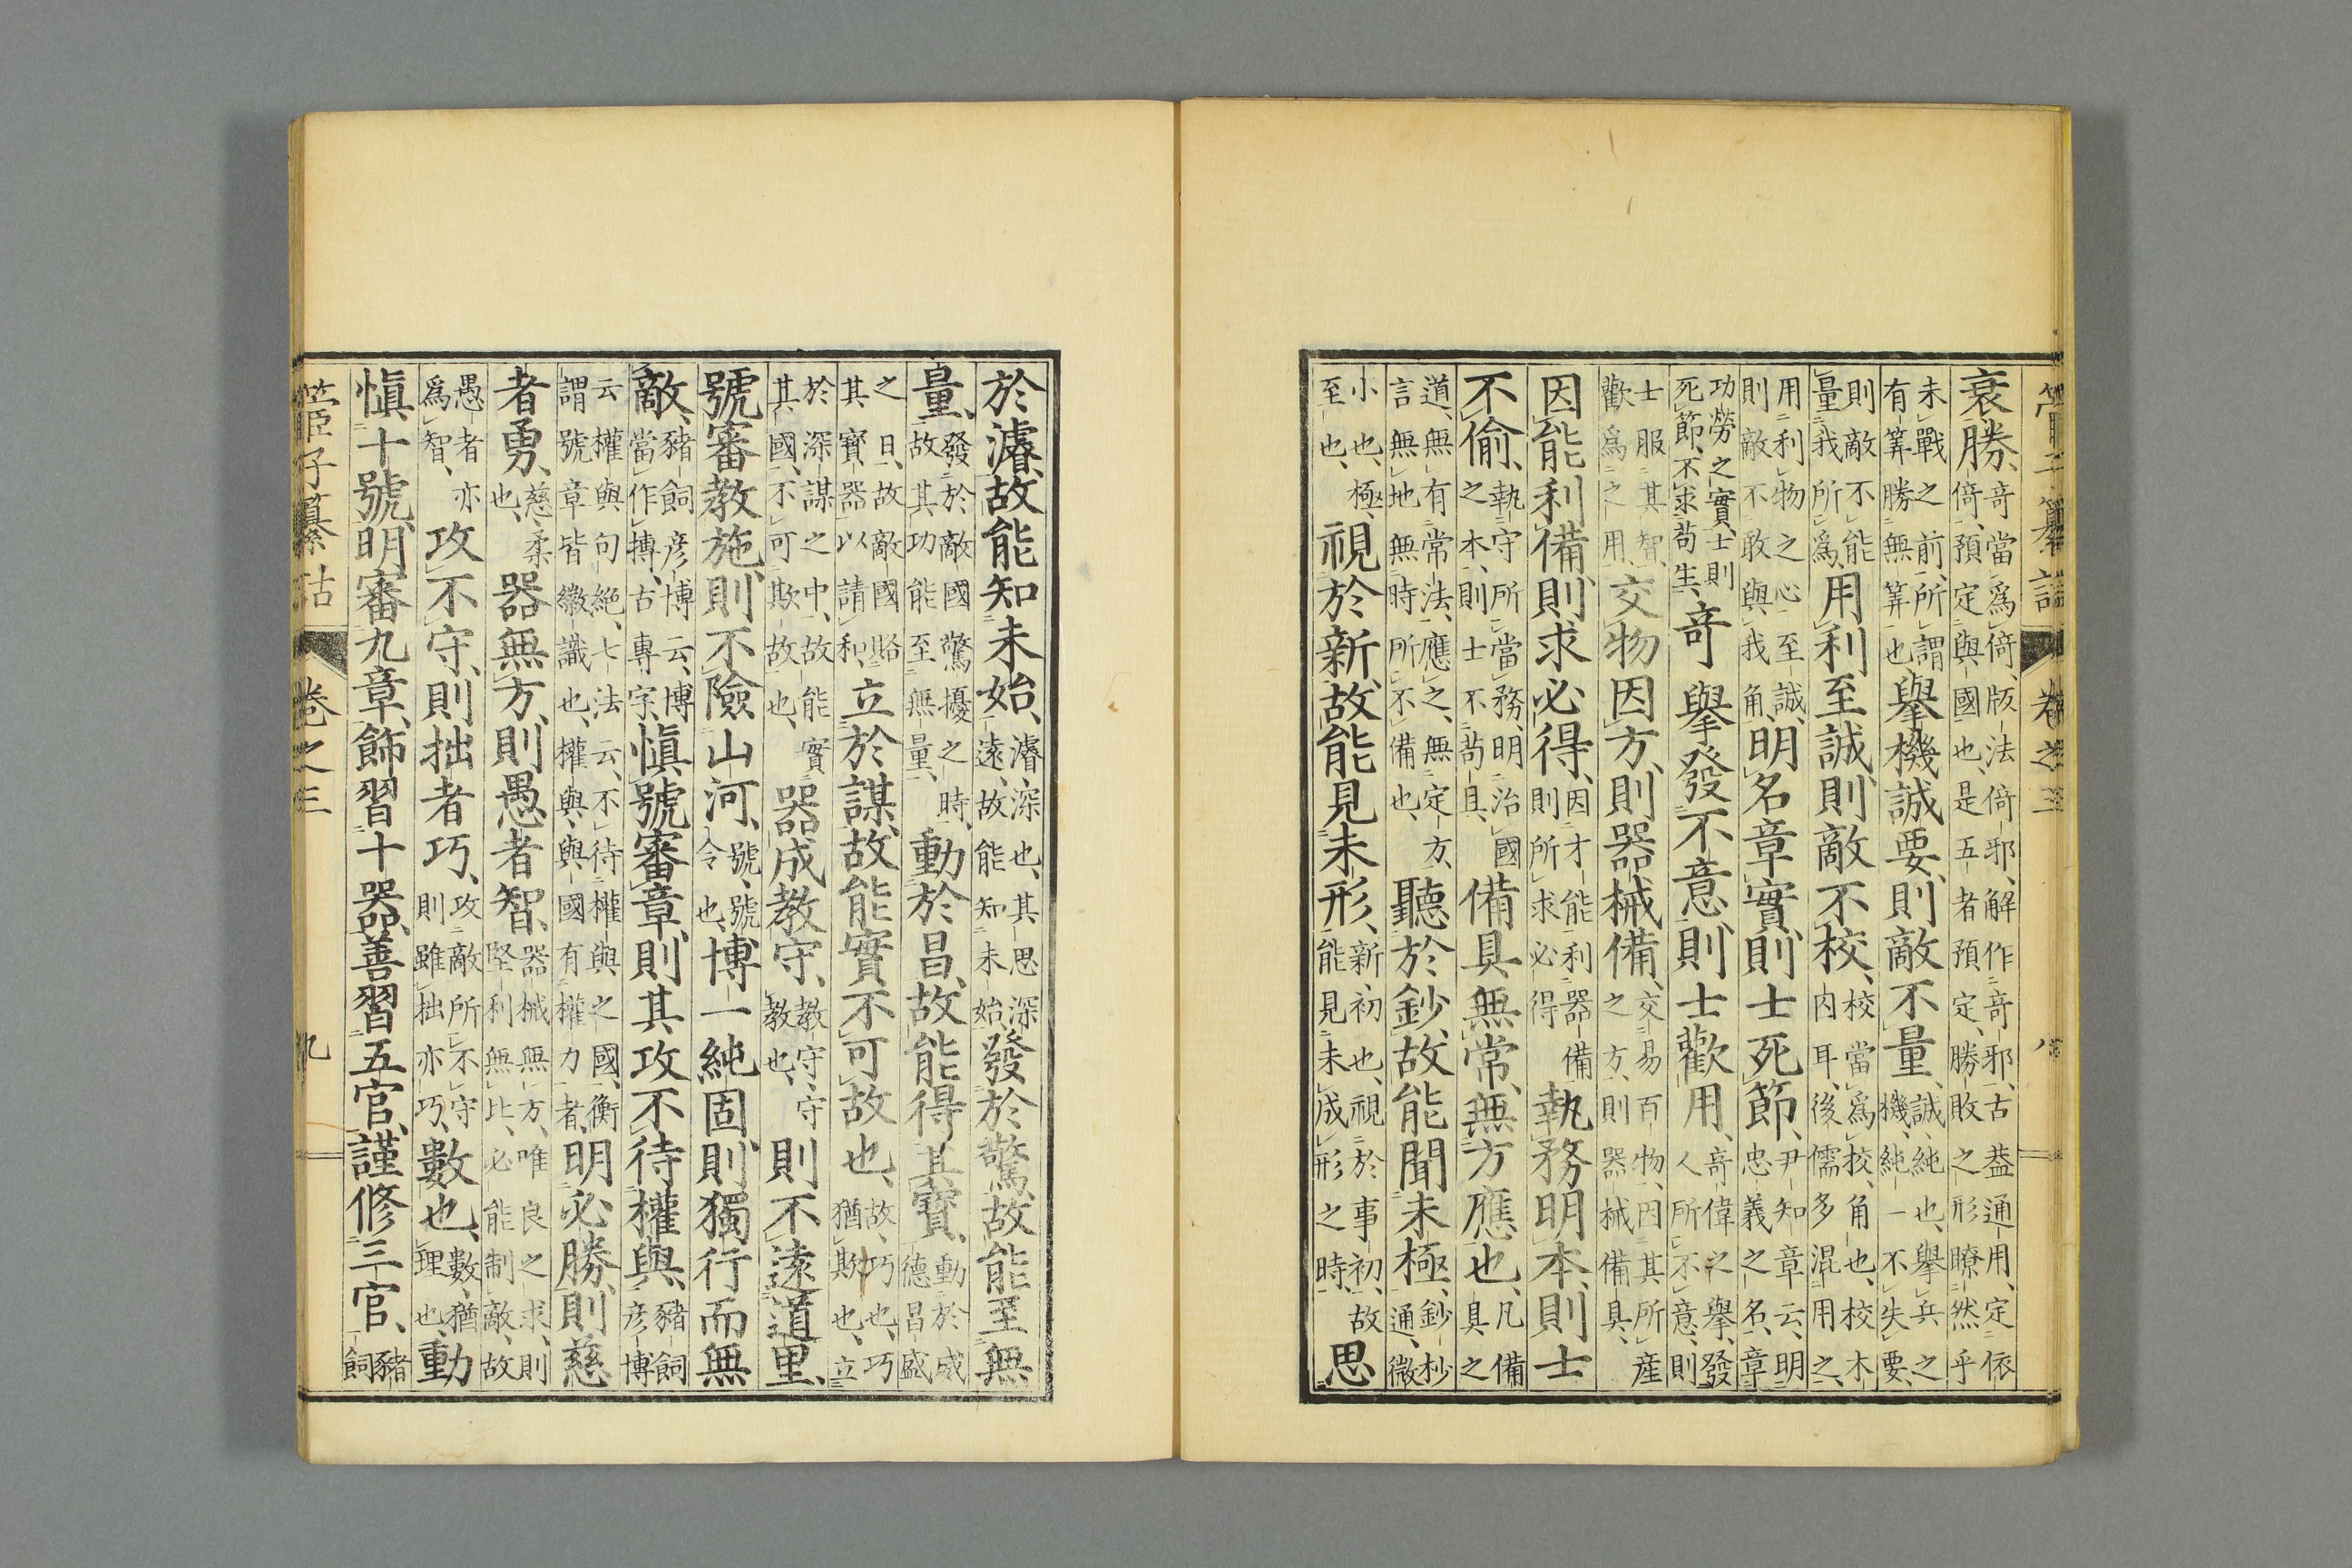 管子纂詁 卷之三 八
衰勝、奇當爲倚、版法倚邪、解作奇邪、古益通用、定依
倚、預定與國也、是五者預定、勝敗之形瞭然乎
未戰之前、所謂
有筭勝無筭也、擧機誠要、則敵不量、誠、純也、擧兵之
機、純一不失要、
則敵不能
量我所爲、用利至誠、則敵不校、校當爲挍、角也、校木
囚耳、後儒多混用之、
用利物之心至誠、
則敵不敢與我角、明名章實、則士死節、尹知章云、明
忠義之名、章
功勞之實、士則
死節、不求苟生、奇擧發不意、則士歡用、奇偉之擧、發
人所不意、則
士服其智、
歡爲之用、交物因方、則器械備、交易百物、因其所產
之方、則器械備具、
因能利備、則求必得、因才能利器備
則所求必得執務明本、則士
不偷、執守所當務、明治國
之本、則士不苟且、備具無常、無方應也、凡備
具之
道、無有常法、應之無定方、
言無地無時所不備也、聽於鈔、故能聞未極、鈔杪
通、微
小也、極、
至也、視於新、故能見未形、新、初也、視於事初、故
能見未成形之時、思
於濬、故能知未始、濬、深也、其思深
遠、故能知未始、發於驚、故能至無
量、發於敵國驚擾之時、
故其功能至無量、動於昌、故能得其寶、動於威
德昌盛
之日、故敵國賂
其寶器以請和、立於謀、故能實不可故也、故、巧也、巧
猶欺也、立
於深謀之中、故能實
其國、不可欺故也、器成敎守、敎守、守
敎也、則不遠道里、
號審敎施、則不險山河、號、號
令也、博一純固、則獨行而無
敵、豬飼彦博云、博
當作摶、古專字、愼號審章、則其攻不待權與、豬飼
彦博
云、權與句絶、七法云、不待權與之國、衡
謂號章皆徽識也、權與、與國有權力者、明必勝、則慈
者勇、慈、柔
也、器無方、則愚者智、器械無方、唯良之求、則
堅利無比、必能制敵、故
愚者亦
爲智、攻不守、則拙者巧、攻敵所不守
則雖拙亦巧、數也、數、猶
理也、動
愼十號、明審九章、飾習十器、善習五官、謹修三官、豬
飼
管子纂詁 卷之三 九